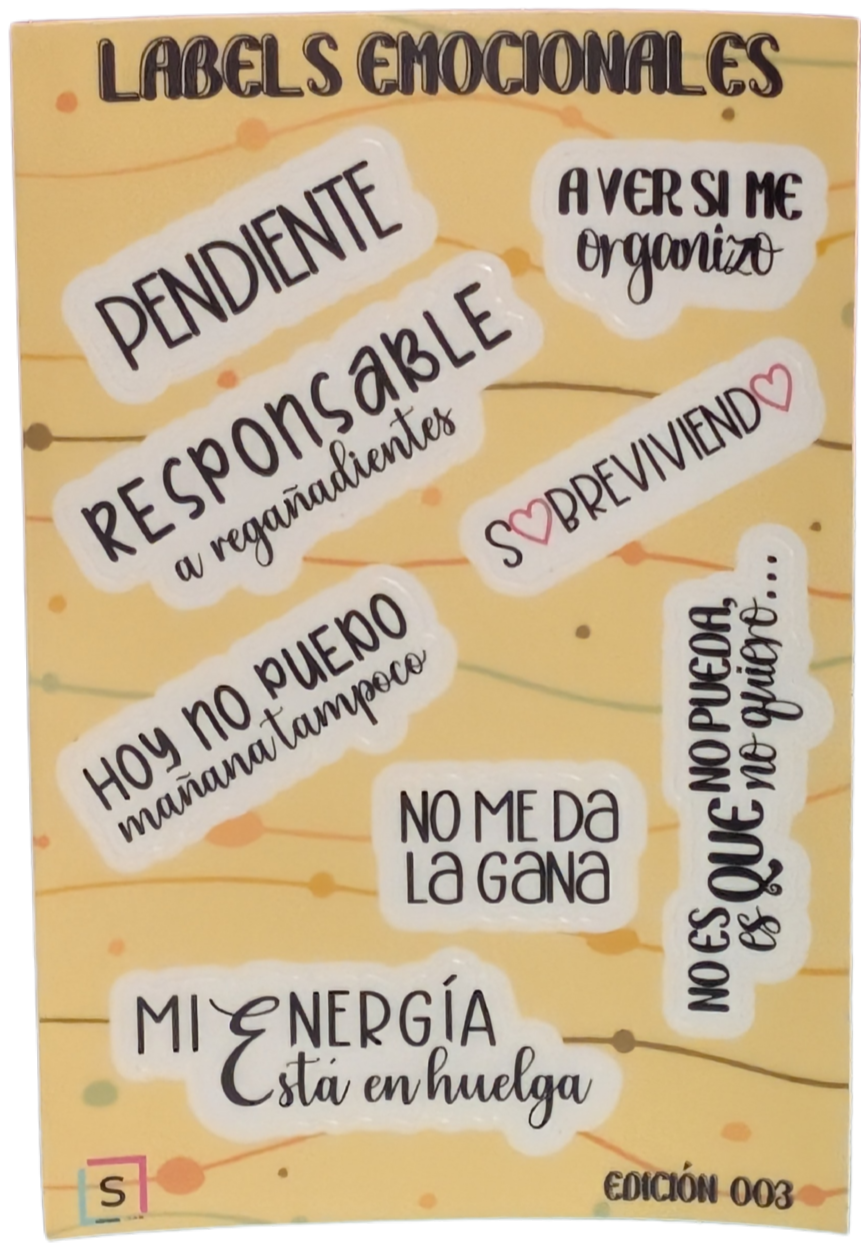 LABELS EMOCIONALES
PENDIENTE
A VER SI ME
organizo
RESPONSABLE
a regañadientes
SOBREVIVIENDO
HOY NO PUEDO
mañana tampoco
NO ES QUE NO PUEDA,
es QUE no quiero...
NO ME DA
LA GANA
MI ENERGÍA
Está en huelga
S
EDICIÓN 003